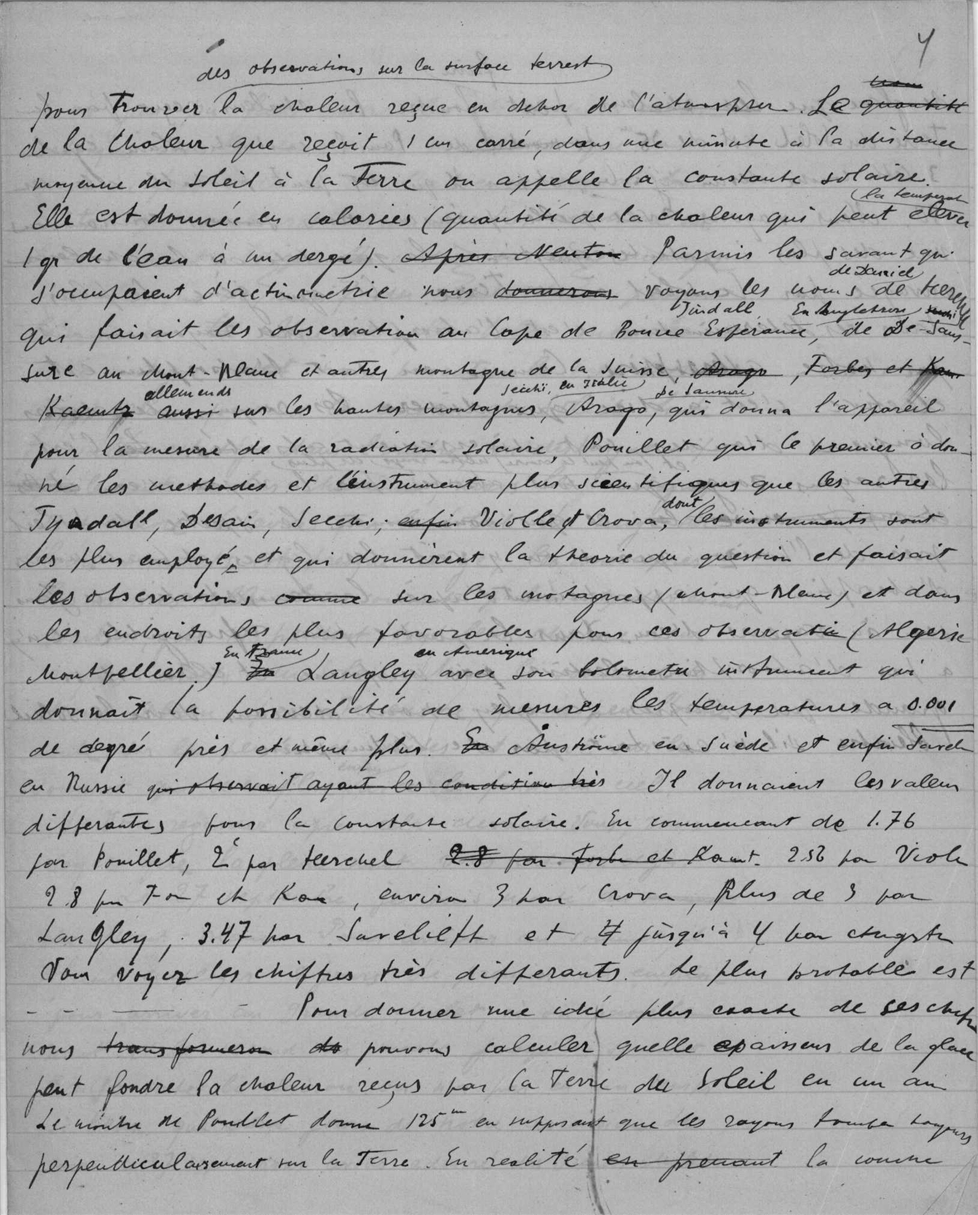 4
des observations sur la surface terrest
pour trouver la chaleur reçue en dehor de l'atmospher. Le quantité
de la chaleur que reçoit 1 cm carré, dans une minute à la distance
moyenne du Soleil à la Terre on appelle la constante solaire.
(la temperat
Elle est donnée en calories (quantité de la chaleur qui peut elever
1 gr de l'eau à un dergé). Après Newton Parmis les savant qui
de Daniel
s'occupaient d'actinometrie nous donnerons voyons les noms de Herschel
Tindall En Angleterre
qui faisait les observation au Cape de Bonne Espérance, de De Saus-
sure au Mont-Blanc et autres montagne de la Suisse, Arago, Forbes et Kam
allemends Secchi, en Italie de Saussure
Kaemtz aussi sur les hautes montagnes, Arago, qui donna l'appareil
pour la mesure de la radiation solaire, Pouillet qui le premier à don-
né les methodes et l'instrument plus scientifiques que les autres
Tyndall, Desain, Secchi, enfin Violle et Crova, dont les instruments sont
les plus employé, et qui donnèrent la theorie du question et faisait
les observations comme sur les motagnes (Mont-Blanc) et dans
les endroits les plus favorables pour ces observatio (Algerie
En France en Amerique
Montpellier.) Langley avec son bolometre instrument qui
donnait la possibilité de mesures les temperatures a 0.001
de degré près et même plus. En Ångström en Suède et enfin Savel
en Russie qui observait ayant les condition très Il donnaient les valeurs
differantes pour la constante solaire. En commencant de 1.76
par Pouillet, 2 par Herschel 2.8 par Forbe et Kamt. 2.56 par Viole
2.8 par For et Kam, environ 3 par Crova, Plus de 3 par
Langley, 3.47 par Savelieff et 4 jusqu'à 4 par Angstr
Vous voyez les chiffres très differants. Le plus probable est
- - — - Pour donner une idée plus exacte de ses chifr
nous transformeron do pouvons calculer quelle epaisseur de la glace
peut fondre la chaleur reçus par la Terre du Soleil en un an
Le nombre de Pouillet donne 125m en supposant que les rayons tombe toujours
perpendiculairement sur la Terre. En realité en prenant la couche